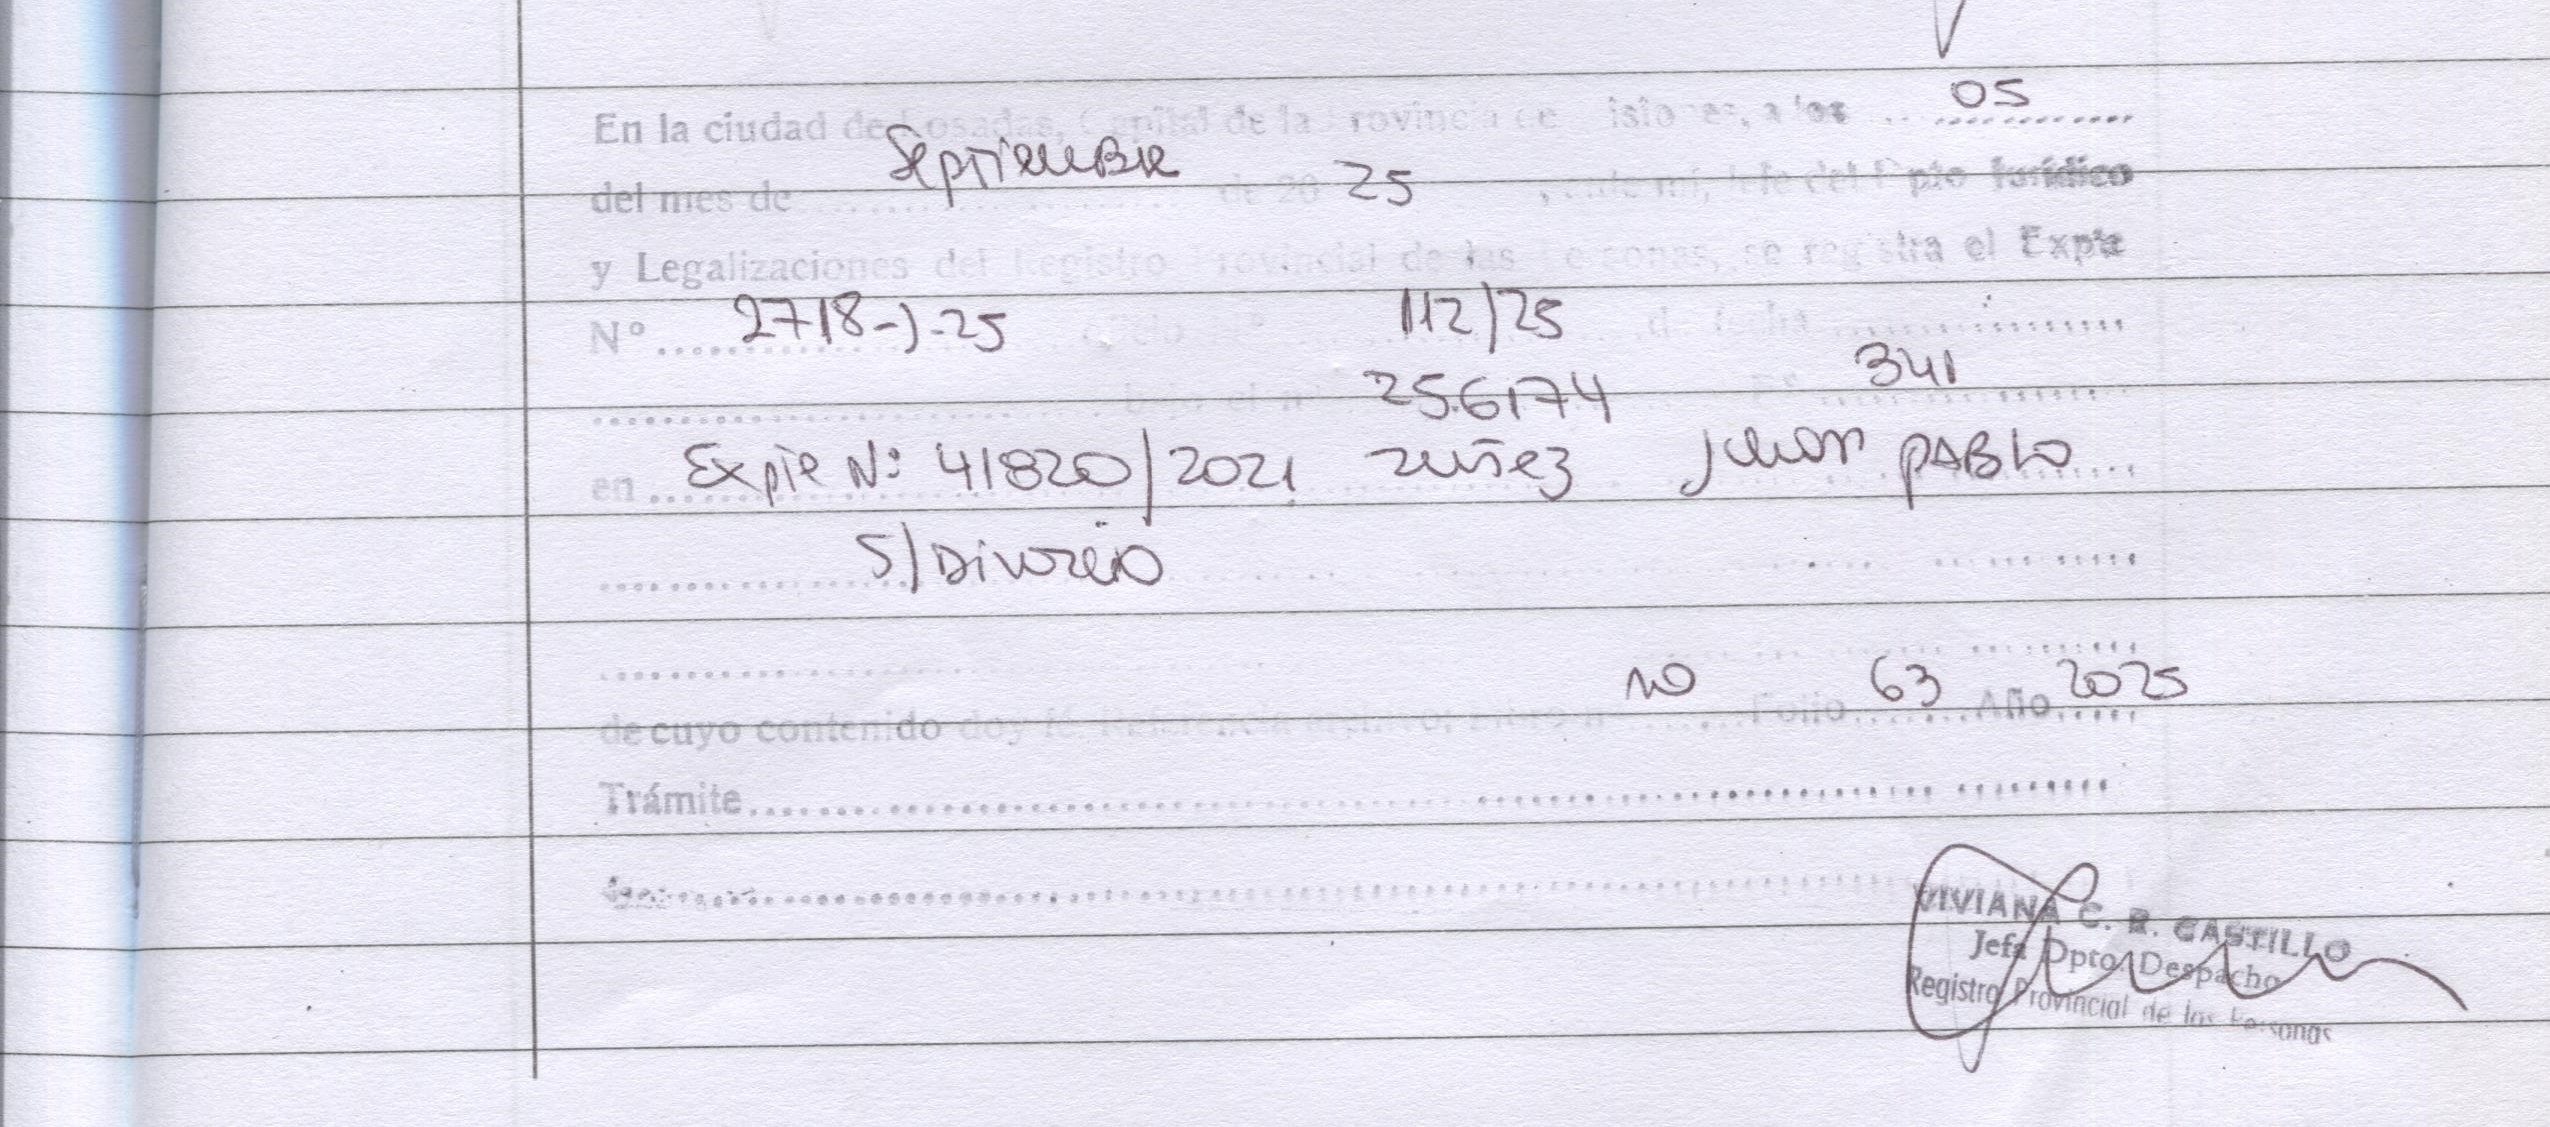 En la ciudad de Posadas, Capital de la Provincia de Misiones, a los 05
del mes de Septiembre de 20 25, ante mi, Jefe del Dpto Jurídico
y Legalizaciones del Registro Provincial de las Personas, se registra el Expte
Nº 2718-J-25 oficio Nº 112/25 de fecha
bajo el nº 256174 Fº 341
en Expte Nº 41820/2021 Nuñez Juan Pablo
S/Divorcio
de cuyo contenido doy fé. Referencia archivo: Libro nº NO Folio 63 Año 2025
Trámite
VIVIANA C. R. CASTILLO
Jefa Dpto. Despacho
Registro Provincial de las Personas